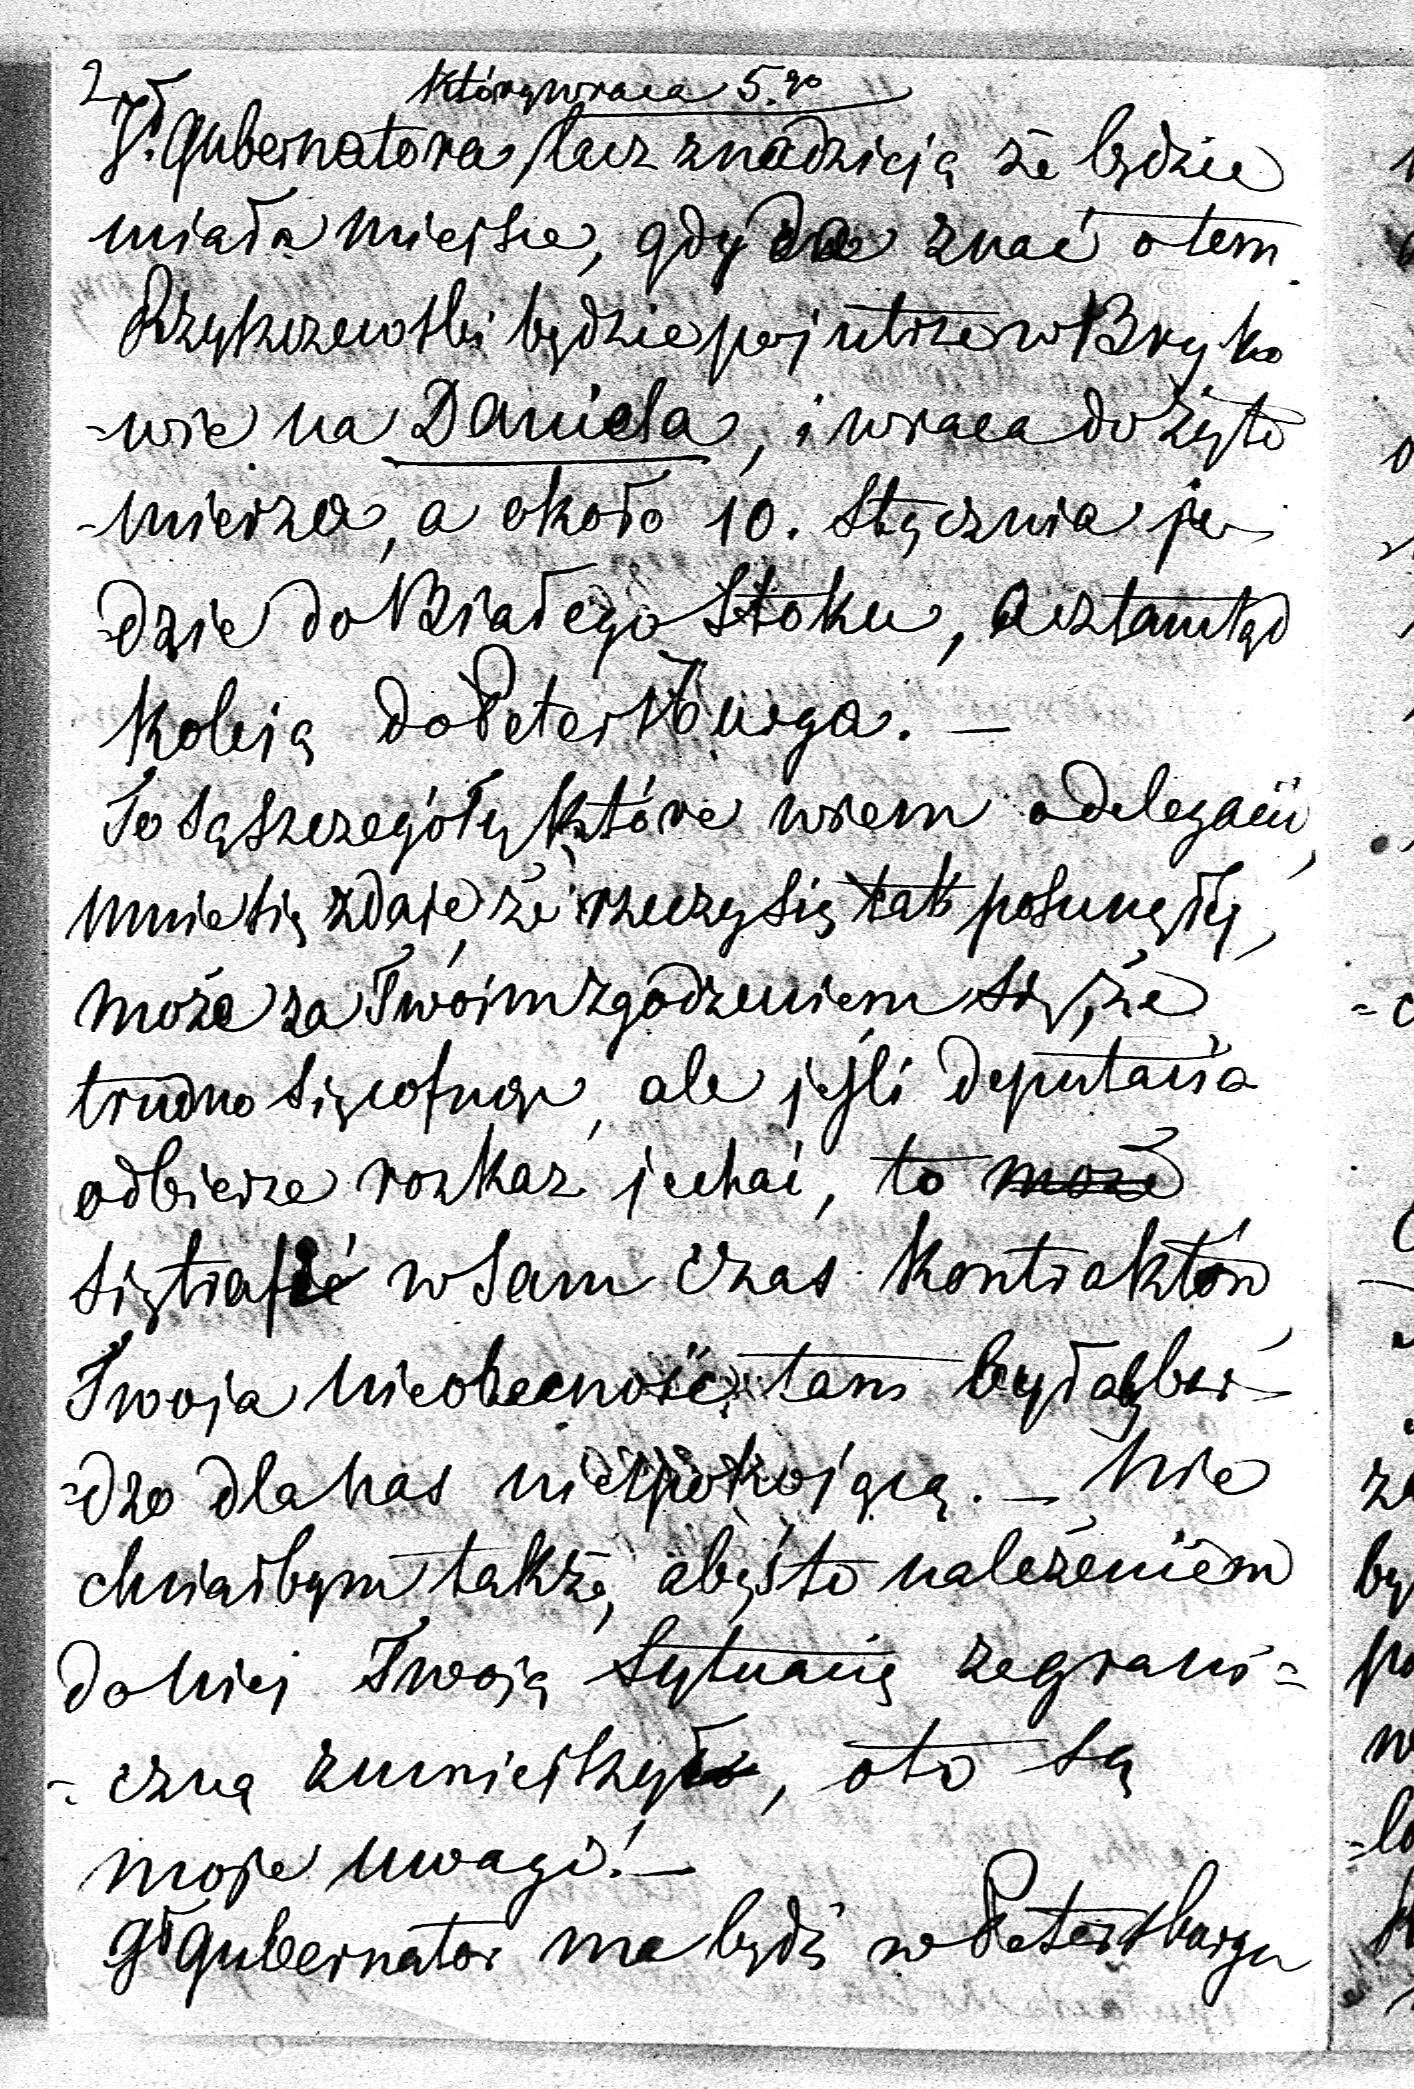 2
który wraca 5.go
Jł. Gubernatora, lecz z nadzieją że będzie
miała miejsce, gdy da znać o tem.
Rzyszczewski będzie pojutrze w Bryko
-wie na Daniela, i wraca do Żyto
-mierza, a około 10. Stycznia je-
-dzie do Białego Stoku, a ztamtąd
Koleją do Petersburga. —
To są szczegóły które wiem o delegacii,
mnie się zdaje, że rzeczy się tak posunęły,
może za Twoim zgodzeniem się, że
trudno się cofnąć, ale jeśli deputacia
odbierze rozkaz jechać, to może
się trafić w sam czas Kontraktów
Twoja nieobecność tam byłaby bar-
-dzo dla nas niespokojącą. — Nie
chciałbym także, abyś to należeniem
do niej Twoją sytuacię zagrani=
-czną zmniejszył, oto są
moje uwagi! —
Gł Gubernator ma bydź w Petersburgu